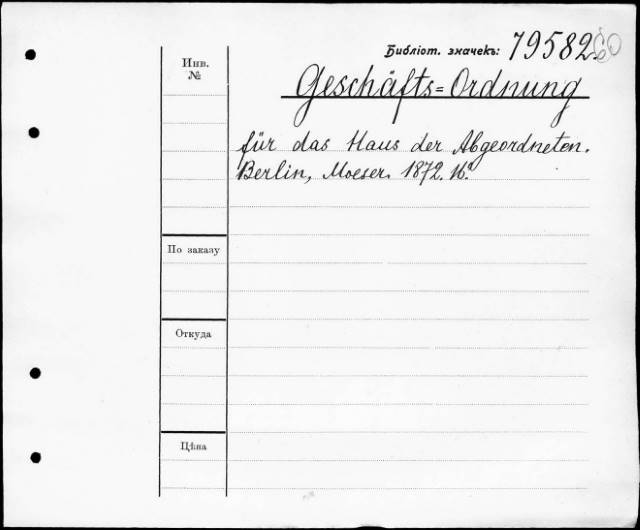 Библіот. значекъ: 79582.
Инв.
№
Geschäfts=Ordnung
für das Haus der Abgeordneten.
Berlin, Moeser. 1872. 16º.
По заказу
Откуда
Цѣна